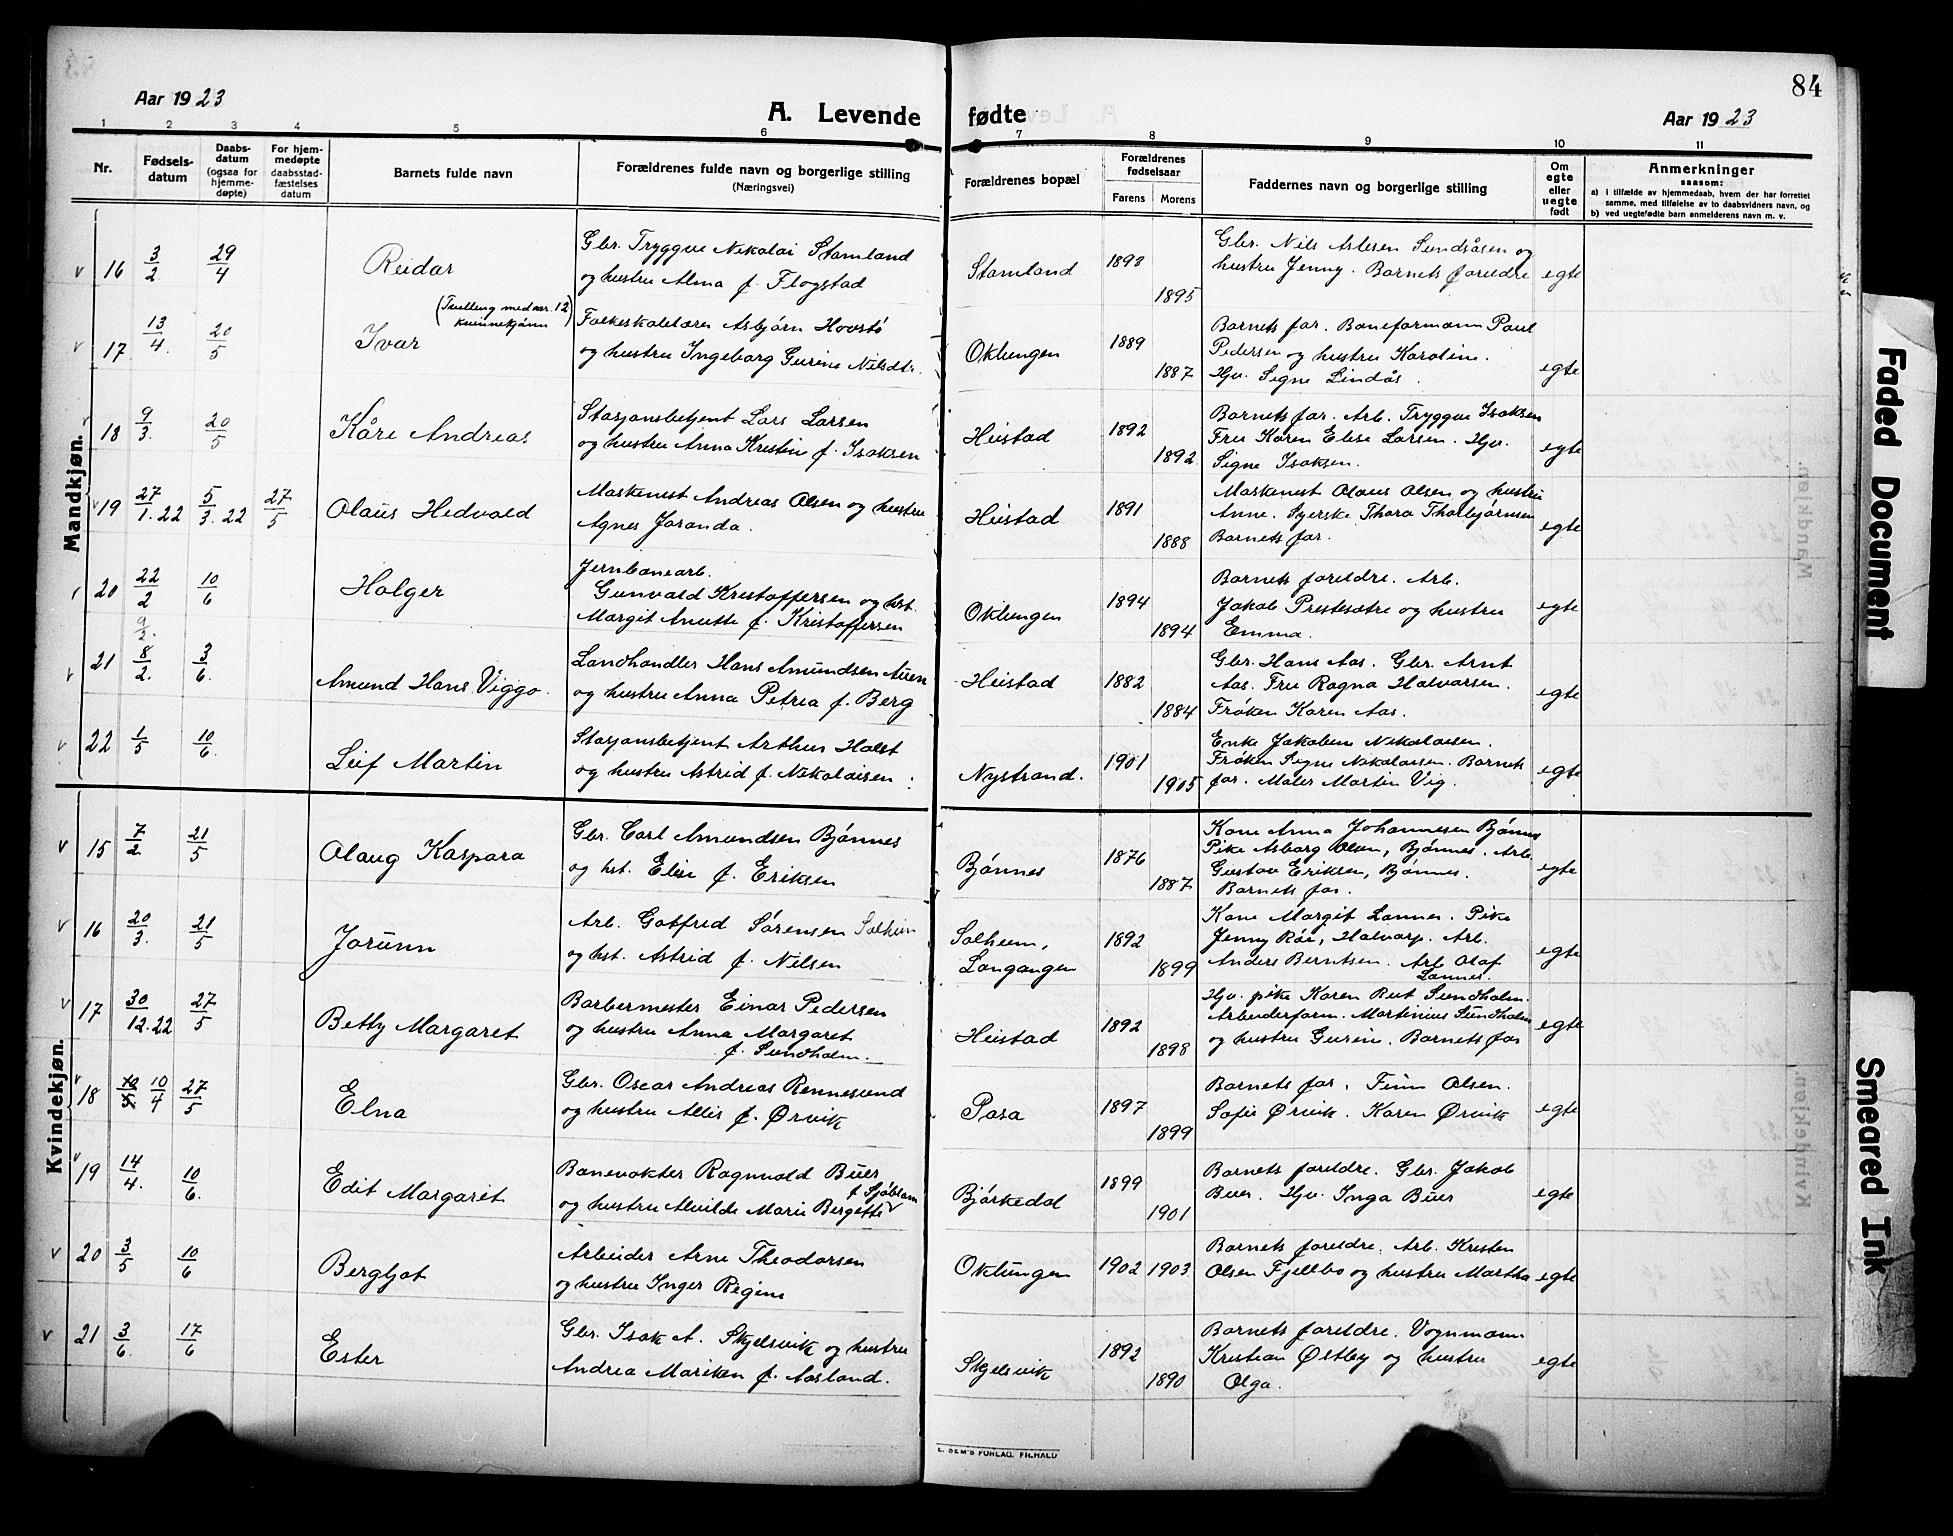 84
Aar 1923
A. Levende fødte
Aar 1923
1 2 3 4 5 6 7 8 9 10 11
Nr.
Fødselsdatum
Daabsdatum (ogsaa for hjemmedøpte)
For hjemmedøpte daabsstadfæstelses datum
Barnets fulde navn
Forældrenes fulde navn og borgerlige stilling
(Næringsvei)
Forældrenes bopæl
Forældrenes fødselsaar
Farens Morens
Faddernes navn og borgerlige stilling
Om egte eller uegte født
Anmerkninger
saasom:
a) i tilfælde av hjemmedaab, hvem der har forrettet
samme, med tilføielse av to daabsvidners navn, og
b) ved uegtefødte barn anmelderens navn m. v.
Mandkjøn.
v 16 3/2 29/4 Reidar
Gbr. Tryggve Nikolai Stamland
og hustru Alma f. Flogstad
Stamland 1893 1895
Gbr. Nils Aslesen Sundsåsen og
hustru Jenny. Barnets foreldre
egte
v 17 13/4. 20/5 Ivar
(Tvilling med nr. 12
kvinnekjønn)
Folkeskolelærer Asbjørn Hovstø
og hustru Ingeborg Gurine Nilsdtr.
Oklungen 1889 1887
Barnets far. Baneformann Paul
Pedersen og hustru Karoline.
Hjv. Signe Lindås.
egte
v 18 9/3. 20/5 Kåre Andreas
Stasjonsbetjent Lars Larsen
og hustru Anna Kristine f. Isaksen
Heistad 1892 1892
Barnets far. Arb. Tryggve Isaksen
Fru Karen Elise Larsen. Hjv.
Signe Isaksen.
egte
v 19 27/1.22 5/3.22 27/5 Olaus Hedvald
Maskinist Andreas Olsen og hustru
Agnes Joranda.
Heistad 1891 1888
Maskinist Olaus Olsen og hustru
Anne. Syerske Thora Thorbjørnsen
Barnets far.
egte
v 20 22/2 10/6 Holger
Jernbanearb.
Gunvald Kristoffersen og hst.
Margit Anette f. Kristoffersen
Oklungen 1894 1894
Barnets foreldre. Arb.
Jakob Prestesætre og hustru
Emma.
egte
9/2.
v 21 8/2. 3/6. Amund Hans Viggo.
Landhandler Hans Amundsen Auen
og hustru Anna Petrea f. Berg
Heistad 1882 1884
Gbr. Hans Aas. Gbr. Arnt
Aas. Fru Ragna Halvorsen.
Frøken Karen Aas.
egte
v 22 1/5 10/6. Leif Martin
Stasjonsbetjent Arthur Holst
og hustru Astrid f. Nikolaisen
Nystrand. 1901 1905
Enke Jakobine Nikolaisen.
Frøken Signe Nikolaisen. Barnets
far. Maler Martin Vig.
egte
Kvindekjøn.
v 15 7/2. 21/5 Olaug Kaspara
Gbr. Carl Amundsen Bjønnes
og hst. Elise f. Eriksen
Bjønnes 1876 1887
Kone Anna Johannesen Bjønnes
Pike Asborg Olsen, Bjønnes. Arb.
Gustav Eriksen, Bjønnes.
Barnets far.
egte
v 16 20/3. 21/5 Jorunn
Arb. Gotfred Sørensen Solheim
og hst. Astrid f. Nilsen
Solheim,
Langangen 1892 1899
Kone Margit Lannes. Pike
Jenny Røe, Halvarp. Arb.
Anders Berntsen. Arb. Olaf
Lannes.
egte
v 17 30/12.22 27/5 Betty Margaret
Barbermester Einar Pedersen
og hustru Anna Margaret
f. Sundholm.
Heistad 1892 1898
Hjv. pike Karen Rut Sundholm.
Arbeiderform. Martinius Sundholm
og hustru Gurine. Barnets far
egte
v 18 10/4 27/5 Elna
Gbr. Oscar Andreas Rennesund
og hustru Allis f. Ørvik
Pasa 1897 1899
Barnets far. Finn Olsen.
Sofie Ørvik. Karen Ørvik
egte
v 19 14/4. 10/6. Edit Margaret
Banevokter Ragnvald Buer
og hustru Alvilde Marie Bergitte f. Sjøblom
Bjørkedal 1899 1901
Barnets foreldre. Gbr. Jakob
Buer. Hjv. Inga Buer
egte
v 20 3/5 10/6 Bergljot
Arbeider Arne Theodorsen
og hustru Inger Regine
Oklungen 1902 1903
Barnets foreldre. Arb. Kristen
Olsen Fjellbo og hustru Martha
egte
v 21 3/6. 17/6 Ester
Gbr. Isak A. Skjelsvik og hustru
Andrea Mariken f. Aasland.
Skjelsvik 1892 1890
Barnets foreldre. Vognmann
Kristian Østby og hustru
Olga.
egte
E. SEM'S FORLAG, FR.HALD
Faded Document
Smeared Ink